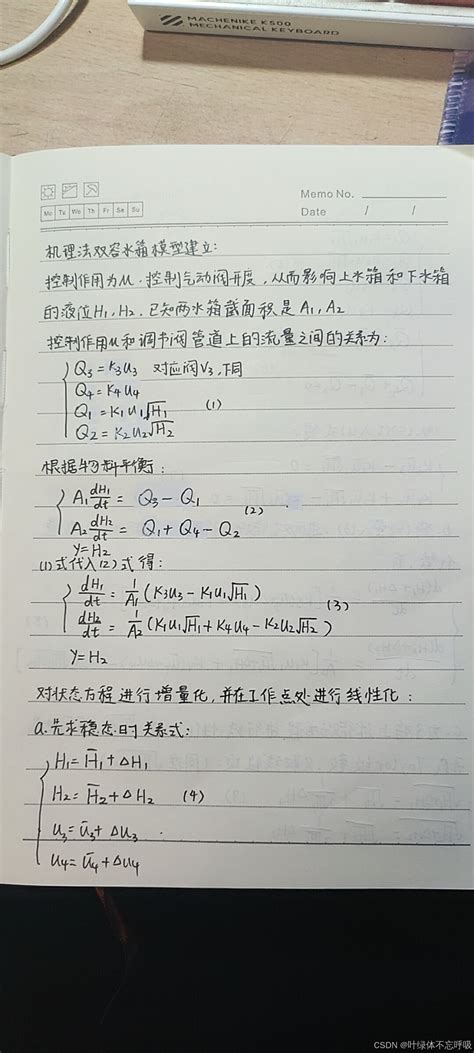 MACHENIKE K500
MECHANICAL KEYBOARD
Memo No.
Mo Tu We Th Fr Sa Su
Date / /
机理法双容水箱模型建立:
控制作用为u.控制气动阀开度,从而影响上水箱和下水箱
的液位H₁,H₂.已知两水箱截面积是A₁,A₂
控制作用u和调节阀管道上的流量之间的关系为:
Q₃=K₃u₃ 对应阀V₃,下同
Q₄=K₄u₄
Q₁=K₁u₁√H₁ (1)
Q₂=K₂u₂√H₂
根据物料平衡:
A₁dH₁/dt=Q₃-Q₁
(2)
A₂dH₂/dt=Q₁+Q₄-Q₂
Y=H₂
(1)式代入(2)式得:
dH₁/dt=1/A₁(K₃u₃-K₁u₁√H₁)
(3)
dH₂/dt=1/A₂(K₁u₁√H₁+K₄u₄-K₂u₂√H₂)
Y=H₂
对状态方程进行增量化,并在工作点处进行线性化:
a.先求稳态时关系式:
H₁=H̅₁+ΔH₁
H₂=H̅₂+ΔH₂ (4)
u₃=u̅₃+Δu₃
u₄=u̅₄+Δu₄
CSDN @叶绿体不忘呼吸